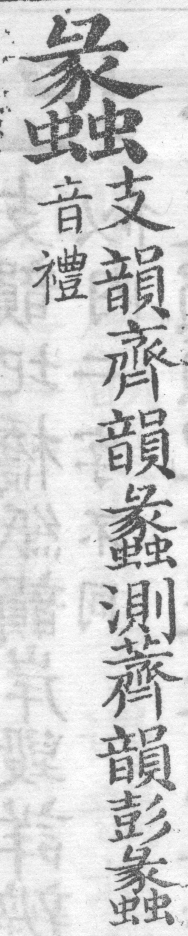 蠡
支韻齊韻蠡測薺韻彭蠡
音禮